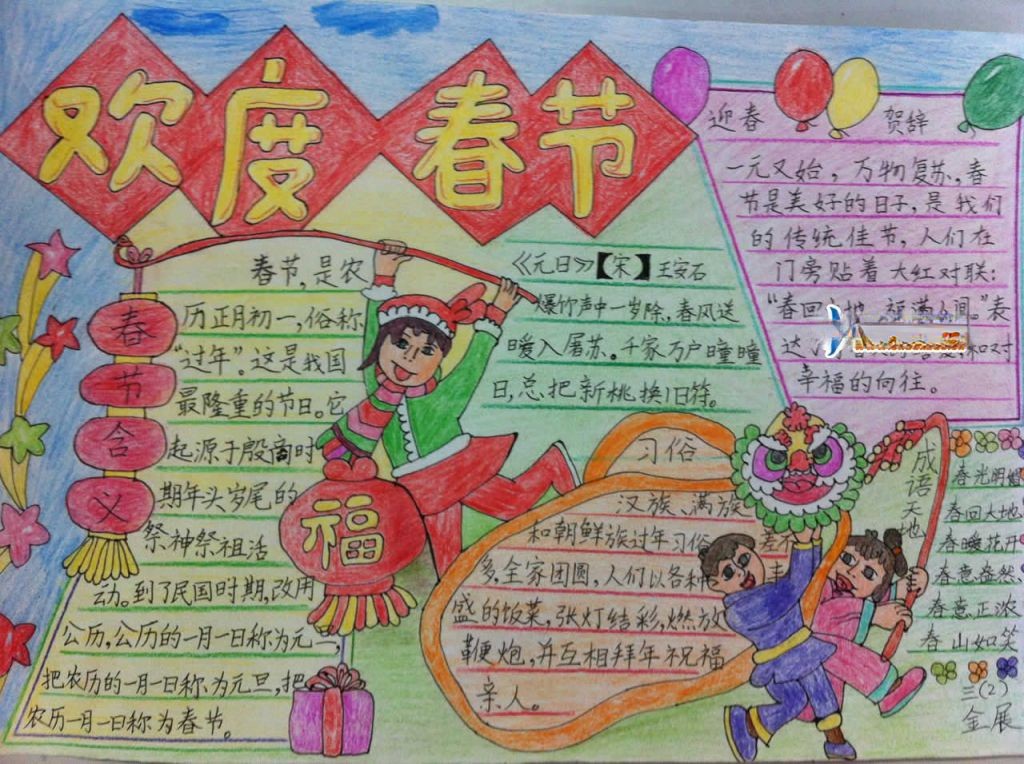 欢度春节
春节含义
春节,是农
历正月初一,俗称
“过年”。这是我国
最隆重的节日。它
起源于殷商时
期年头岁尾的
祭神祭祖活
动。到了民国时期,改用
公历,公历的一月一日称为元一,
把农历的一月一日称为元旦,把
农历一月一日称为春节。
福
《元日》【宋】王安石
爆竹声中一岁除,春风送
暖入屠苏。千家万户曈曈
日,总把新桃换旧符。
迎春 贺辞
一元又始,万物复苏,春
节是美好的日子,是我们
的传统佳节,人们在
门旁贴着大红对联:
“春回 地 福满 间。”表
达 和对
幸福的向往。
习俗
汉族、满族
和朝鲜族过年习俗 差不
多,全家团圆,人们以各种
盛的饭菜,张灯结彩,燃放
鞭炮,并互相拜年祝福
亲人。
成语天地
春光明媚
春回大地、
春暖花开
春意盎然、
春意正浓
春山如笑
三(2)
金展